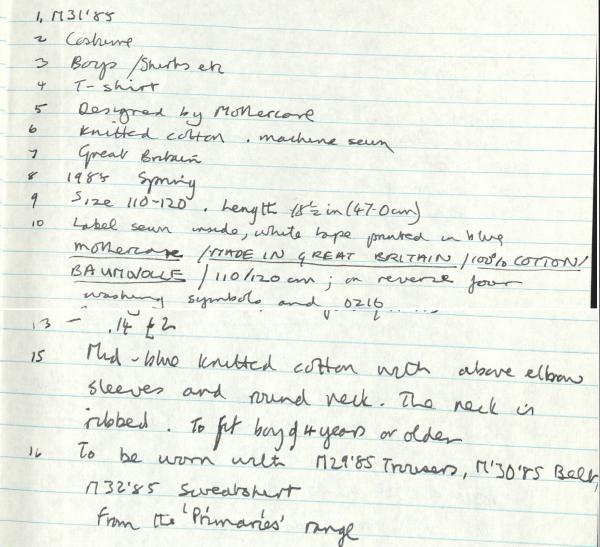 1, M31'85
2 Costume
3 Boys / Shirts etc
4 T-shirt
5 Designed by Mothercare
6 Knitted cotton . machine sewn
7 Great Britain
8 1985 Spring
9 Size 110-120 . Length 18½ in (47.0cm)
10 Label sewn inside, white tape printed in blue
mothercare / MADE IN GREAT BRITAIN / 100% COTTON /
BAUMWOLLE / 110/120 cm ; on reverse four
washing symbols and 0216
13 - .14 £2
15 Mid-blue knitted cotton with above elbow
sleeves and round neck. The neck is
ribbed. To fit boy of 4 years or older
16 To be worn with M29'85 Trousers, M'30'85 Belt,
M32'85 Sweatshirt
from the 'Primaries' range